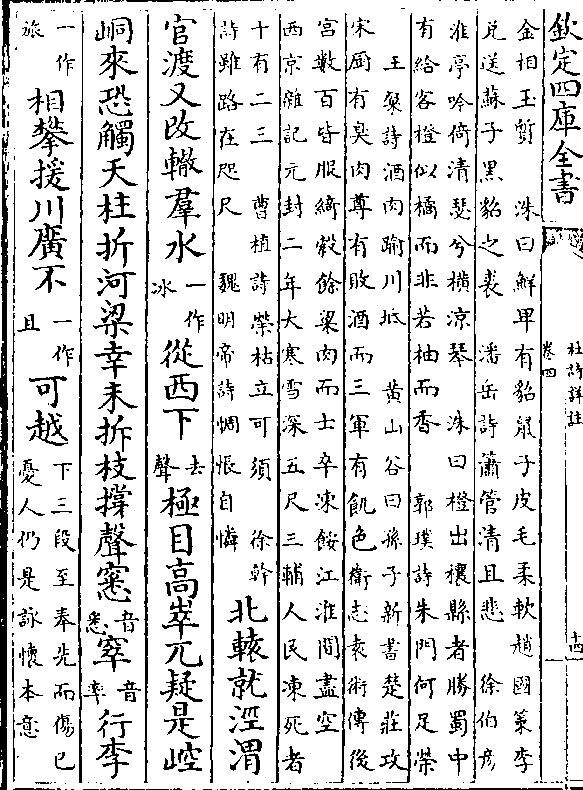 欽定四庫全書
杜詩詳註
卷四
十四
金相玉質　洙曰鮮卑有貂鼠子皮毛柔軟趙國策李
兌送蘇子黑貂之裘　潘岳詩簫管清且悲　徐伯彥
淮亭吟倚清瑟兮横涼琴　洙曰橙出穰縣者勝蜀中
有給客橙似橘而非若柚而香　郭璞詩朱門何足榮
王粲詩酒肉踰川坻　黃山谷曰孫子新書楚莊攻
宋厨有臭肉尊有敗酒而三軍有飢色衛志袁術傳後
宮數百皆服綺縠餘粱肉而士卒凍餒江淮間盡空
西京雜記元封二年大寒雪深五尺三輔人民凍死者
十有二三　曹植詩榮枯立可須　徐幹
詩雖路在咫尺　魏明帝詩惆悵自憐
北轅就涇渭
官渡又改轍羣水一作冰從西下去聲極目高崒兀疑是崆
峒來恐觸天柱折河梁幸未拆枝撐聲窸音悉窣音率行李
一作旅相攀援川廣不一作且可越下三段至奉先而傷已憂人仍是詠懷本意